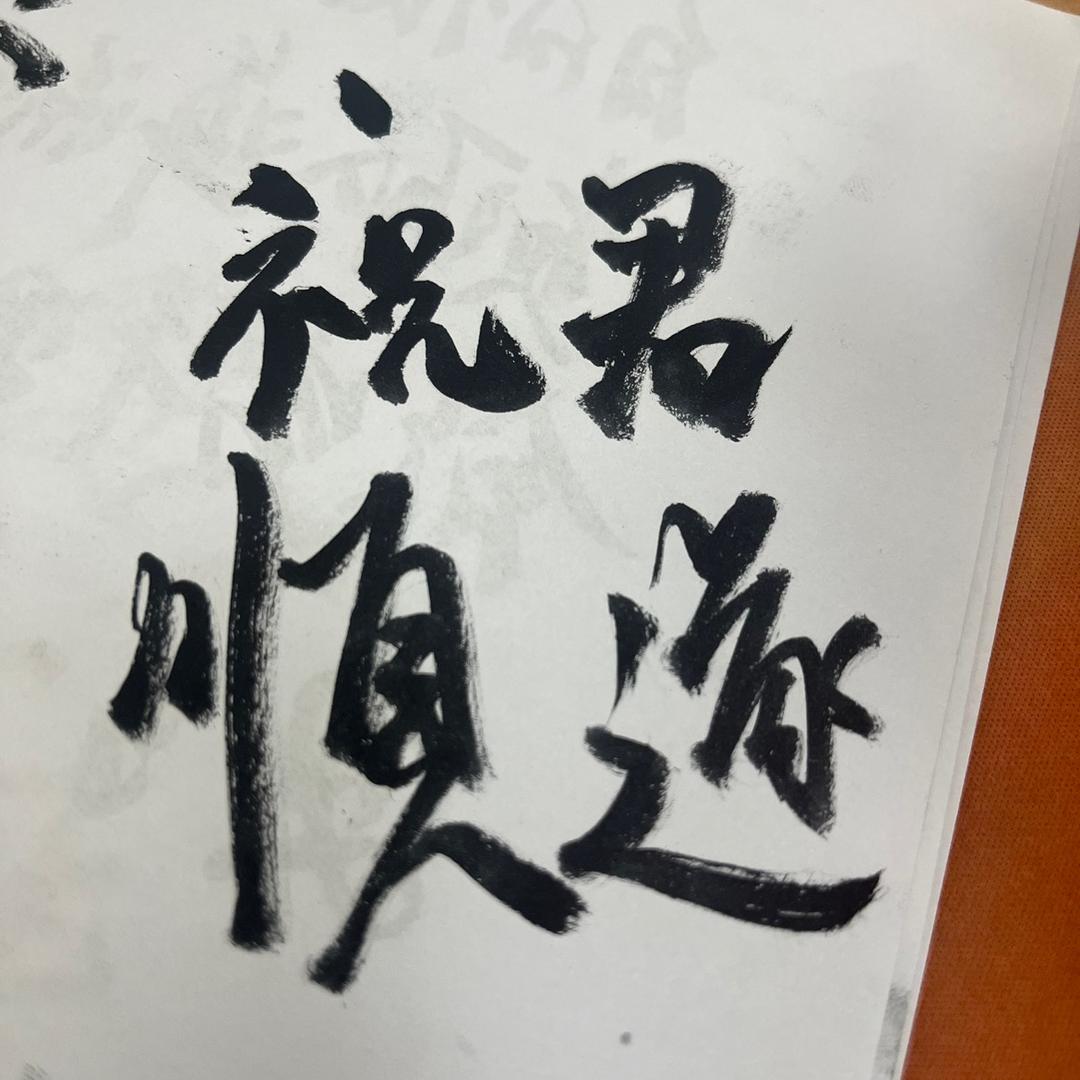 祝君
順遂